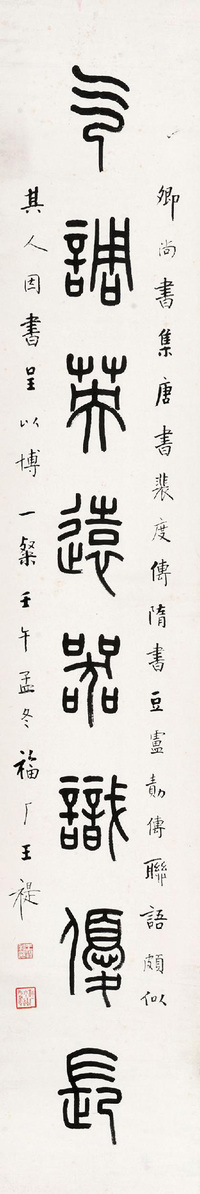 气調英遠器識優長
卿尚書集唐書裴度傳隋書豆盧勣傳聯語頗似
其人因書呈以博一粲壬午孟冬福厂王禔